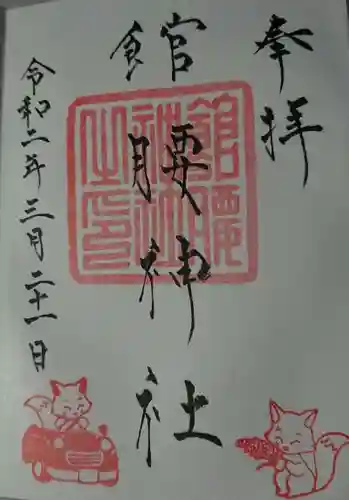 奉拝
館腰神社
館腰神社之印
令和二年三月二十一日